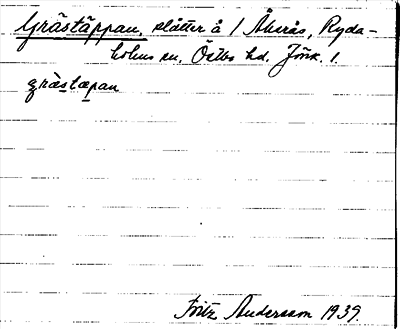 Grästäppan, slåtter å 1 Åkerås, Ryda-
holms sn. Östbo hd. Jönk. l.
grästæpan
Fritz Andersson 1939.